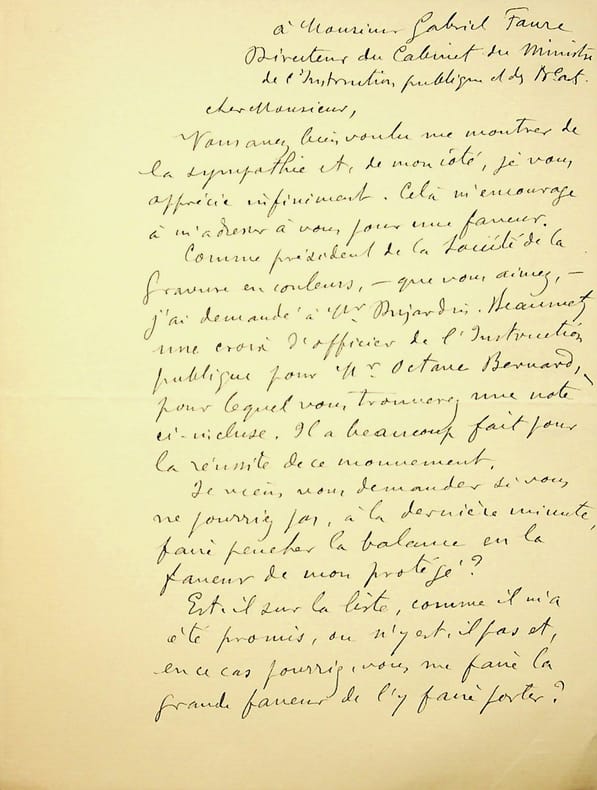 à Monsieur Gabriel Faure
Directeur du Cabinet du Ministre
de l'Instruction publique et des Bx Arts.
cher Monsieur,
Vous avez bien voulu me montrer de
la sympathie et, de mon côté, je vous
apprécie infiniment. Celà m'encourage
à m'adresser à vous pour une faveur.
Comme président de la Société de la
Gravure en couleurs, – que vous aimez, –
j'ai demandé à Mr Dujardin. Beaumetz
une croix d'officier de l'Instruction
publique pour Mr. Octave Bernard,
pour lequel vous trouverez une note
ci-incluse. Il a beaucoup fait pour
la réussite de ce mouvement.
Je viens vous demander si vous
ne pourriez pas, à la dernière minute,
faire pencher la balance en la
faveur de mon protégé ?
Est-il sur la liste, comme il m'a
été promis, ou n'y est-il pas et,
en ce cas pourriez-vous me faire la
grande faveur de l'y faire porter ?